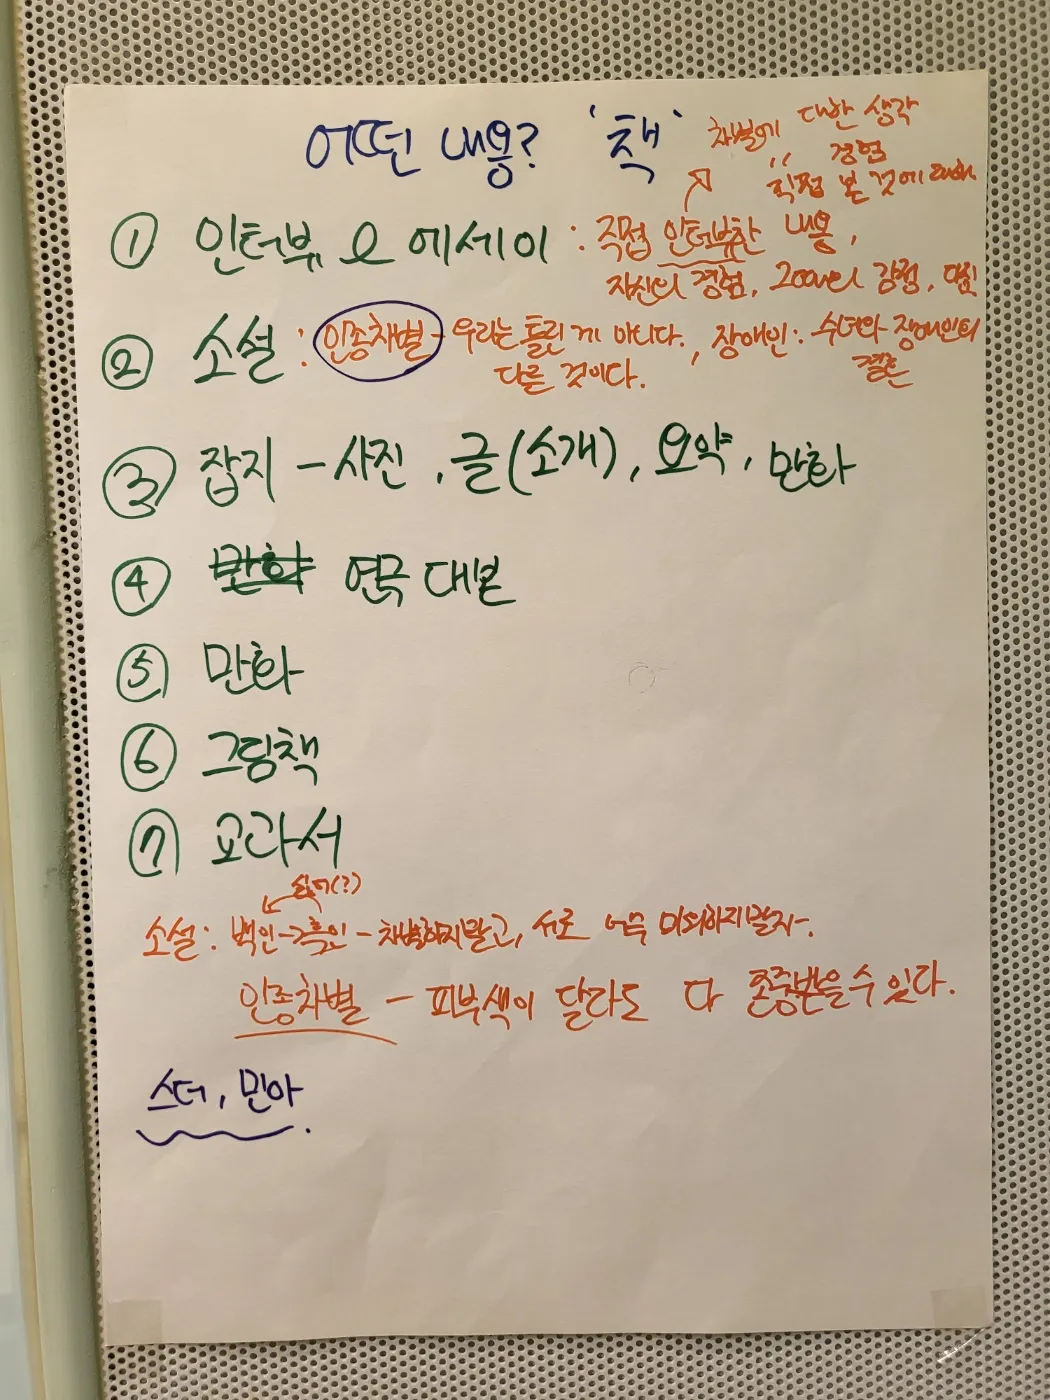 어떤 내용? '책'
차별에 대한 생각
〃 경험
직접 본 것에 대해
① 인터뷰, 에세이 : 직접 인터뷰한 내용,
자신의 경험, 감정,
② 소설 : 인종차별 - 우리는 틀린 게 아니다. , 장애인 : 수녀와 장애인의
다른 것이다. 결혼
③ 잡지 - 사진, 글(소개), 요약, 만화
④ 연극 대본
⑤ 만화
⑥ 그림책
⑦ 교과서
(?)
소설 : 백인 - 흑인 - 차별하지말고, 서로 미워하지말자.
인종차별 - 피부색이 달라도 다 존중받을 수 있다.
민아